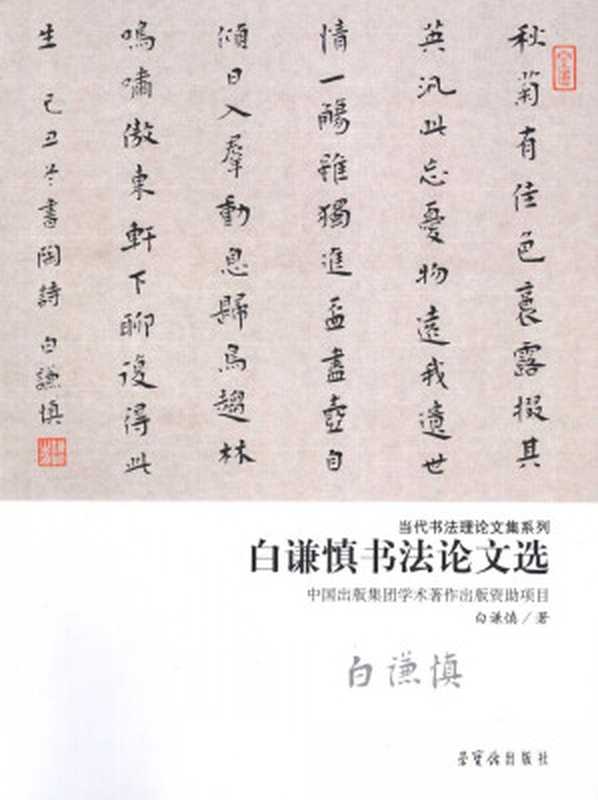 秋菊有佳色裛露掇其
英汎此忘憂物遠我遺世
情一觴雖獨進盃盡壺自
傾日入羣動息歸鳥趨林
鳴嘯傲東軒下聊復得此
生 己丑冬書陶詩 白謙慎
当代书法理论文集系列
白谦慎书法论文选
中国出版集团学术著作出版资助项目
白谦慎/著
白谦慎
榮寶齋出版社